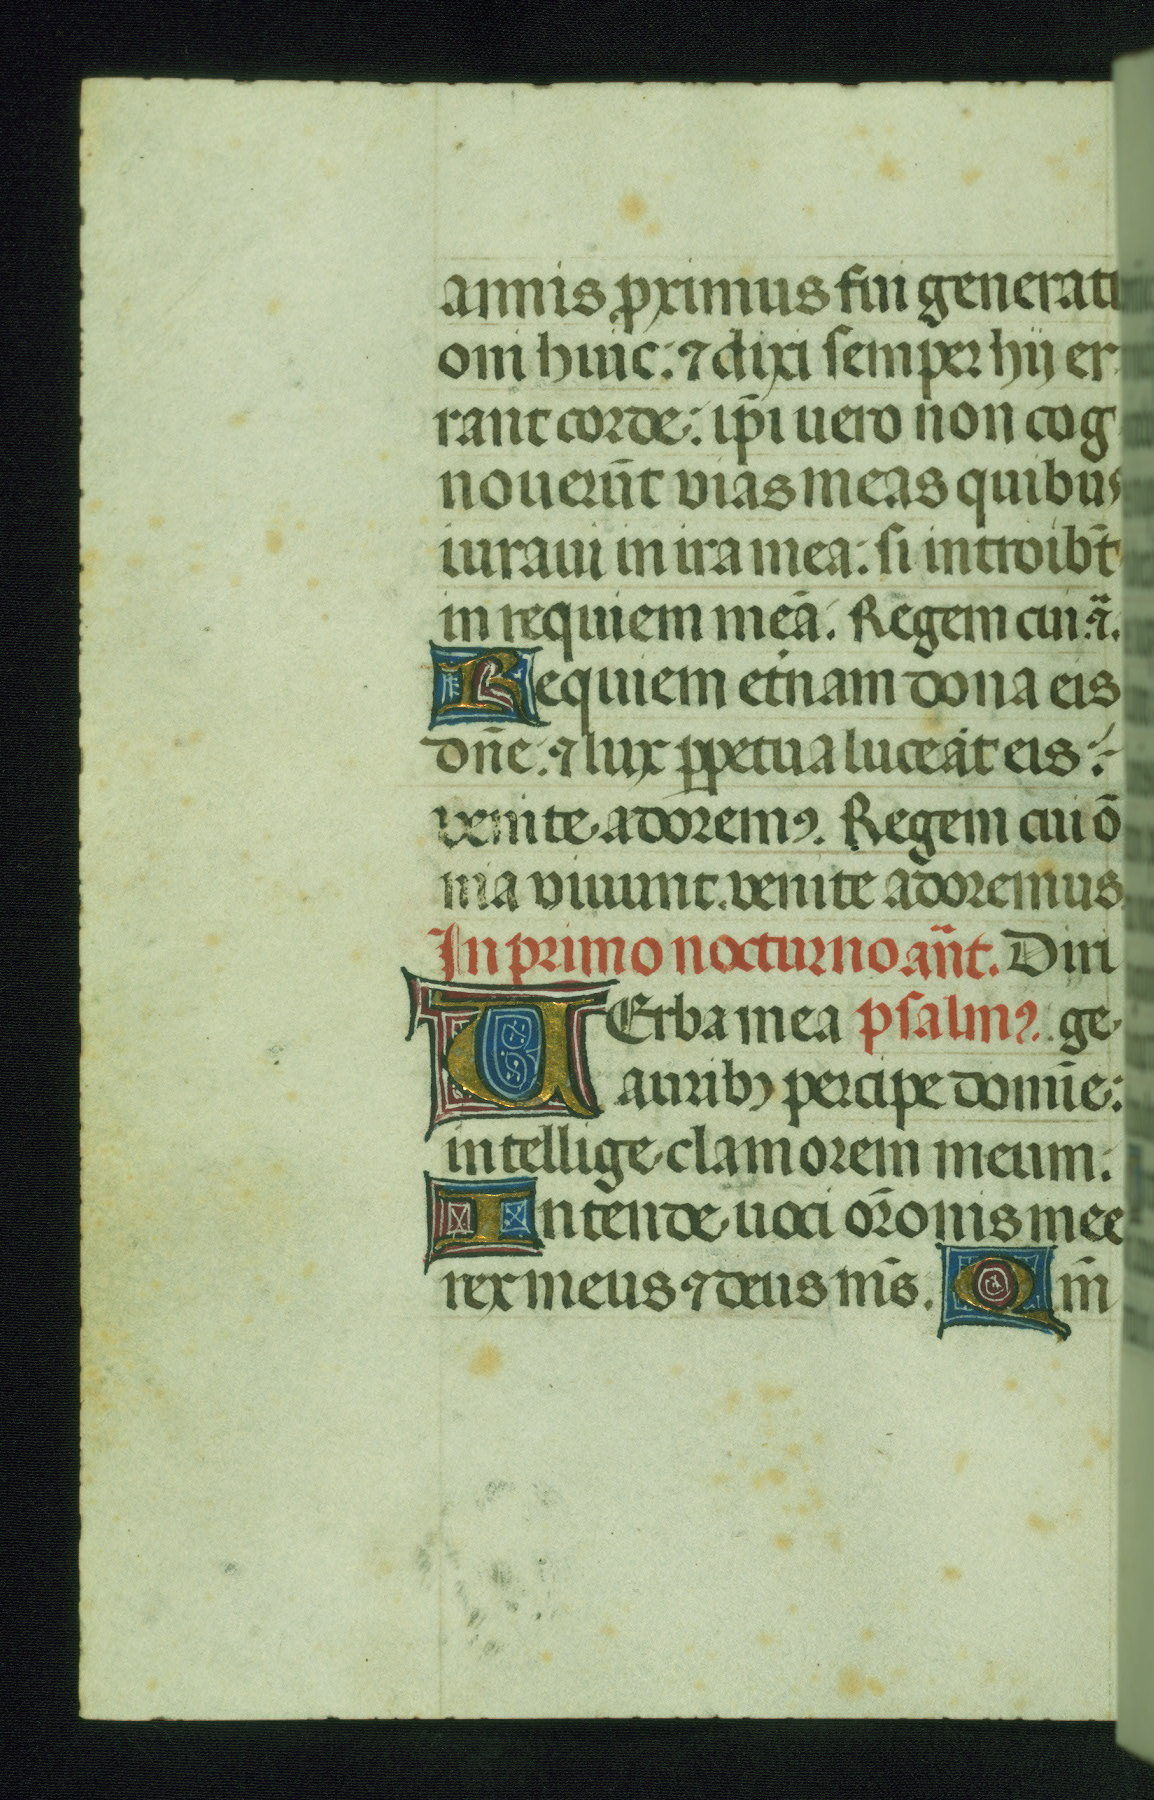 annis ꝓximus fui generati
oni huic: ⁊ dixi semper hij er
rant corde: ip̄i uero non cog
nouerūt vias meas quibus
iuraui in ira mea: si introibt̄
in requiem meā. Regem cui .ā.
Requiem et̄nam dona eis
dn̄e. ⁊ lux ꝑpetua luceat eis :
venite adoremꝰ. Regem cui ō
nia viuunt. venite adoremus
In primo nocturno an̄t. Diri
UErba mea psalmꝰ. ge
auribꝫ percipe domīe:
intellige clamorem meum.
Intende uoci or̄onis mee
rex meus ⁊ deus ms̄. Qm̄